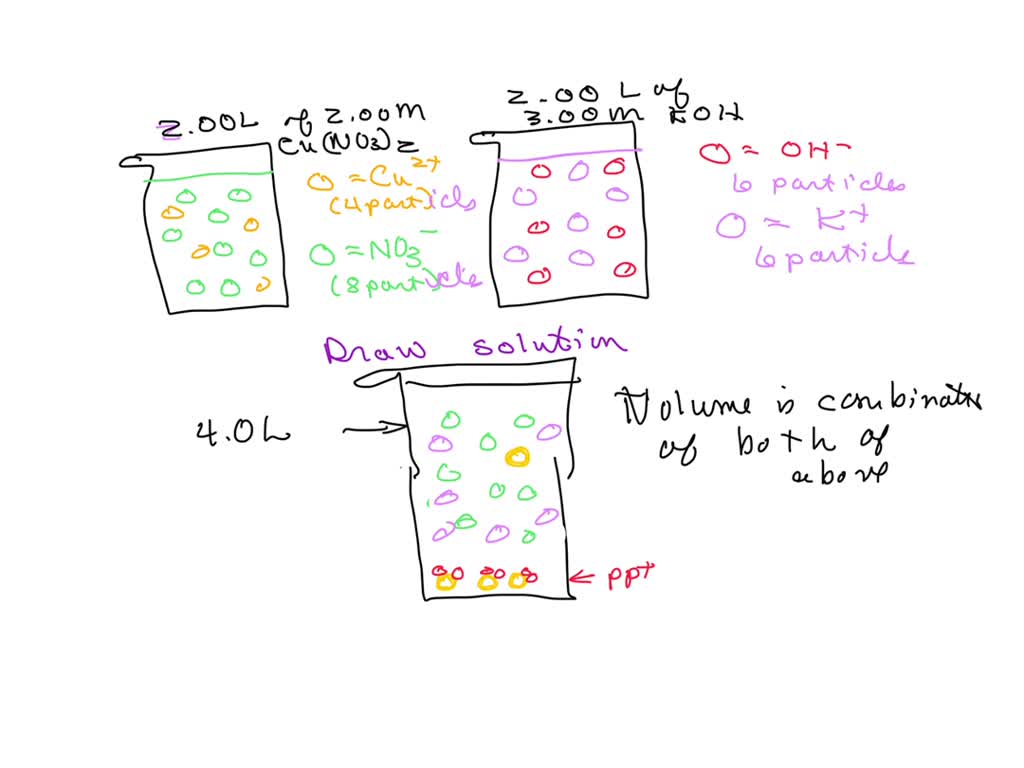 2.00L of 2.00M
Cu(NO3)2
O = Cu2+
(4 particles
O = NO3-
(8 particles
2.00 L of
3.00M KOH
O = OH-
6 particles
O = K+
6 particles
Draw solution
4.0L
Volume is combination
of both of
above
ppt